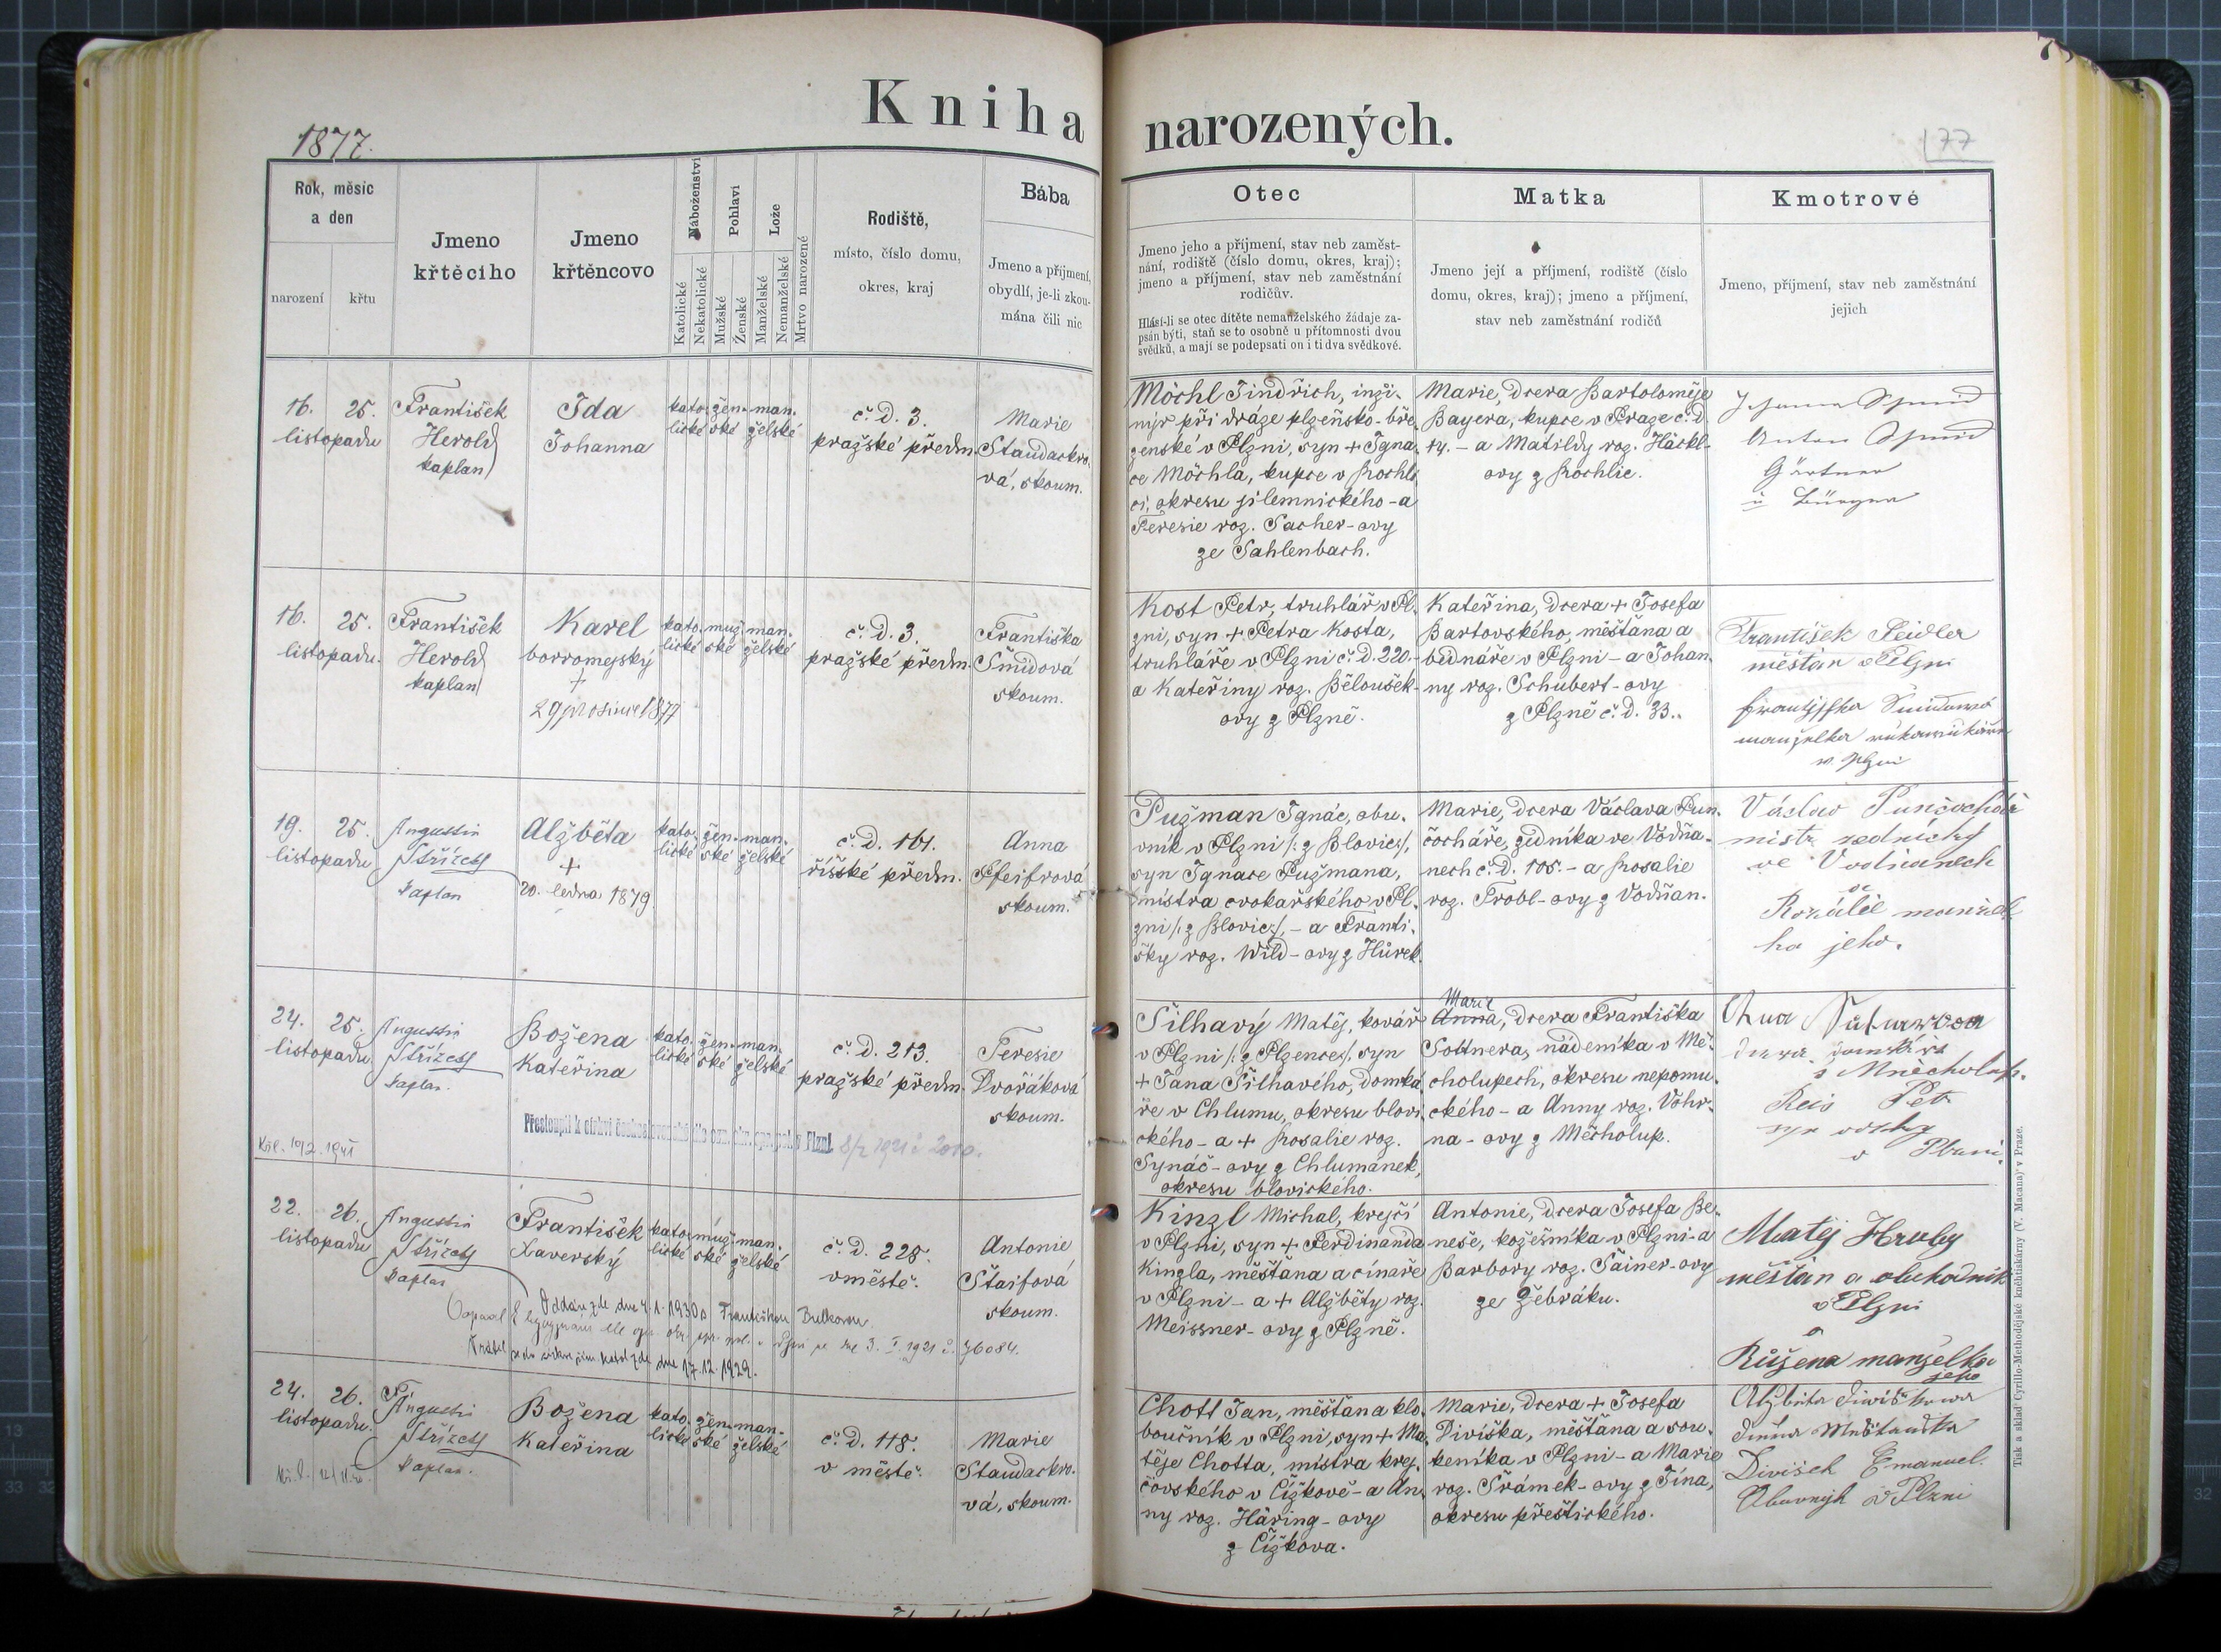 Kniha narozených.
1877.
177
Rok, měsíc
a den
narození
křtu
Jmeno
křtěcího
Jmeno
křtěncovo
Náboženství
Katolické
Nekatolické
Pohlaví
Mužské
Ženské
Lože
Manželské
Nemanželské
Mrtvo narozené
Rodiště,
místo, číslo domu,
okres, kraj
Bába
Jmeno a příjmení,
obydlí, je-li zkou-
mána čili nic
Otec
Jmeno jeho a příjmení, stav neb zaměst-
nání, rodiště (číslo domu, okres, kraj);
jmeno a příjmení, stav neb zaměstnání
rodičův.
Hlásí-li se otec dítěte nemanželského žádaje za-
psán býti, staň se to osobně u přítomnosti dvou
svědků, a mají se podepsati on i ti dva svědkové.
Matka
Jmeno její a příjmení, rodiště (číslo
domu, okres, kraj); jmeno a příjmení,
stav neb zaměstnání rodičů
Kmotrové
Jmeno, příjmení, stav neb zaměstnání
jejich
16. 25.
listopadu
František
Herold
kaplan
Ida
Johanna
kato- žen- man-
lické ské želské
č. d. 3.
pražské předm.
Marie
Staudackro-
vá, skoum.
Möchl Jindřich, inži-
nýr při dráze plzeňsko-bře-
zenské v Plzni, syn + Igna-
ce Möchla, kupce v Rochli-
ci, okresu jilemnického - a
Teresie roz. Sacher-ovy
ze Sahlenbach.
Marie, dcera Bartoloměje
Bayera, kupce v Praze č. d.
14. - a Matildy roz. Häckl-
ovy z Rochlic.
Anton
Gärtner
u Bürger
16. 25.
listopadu.
František
Herold
kaplan
Karel
borromejský
+
29 prosince 1877
kato- muž- man-
lické ské želské
č. d. 3.
pražské předm.
Františka
Šmídová
skoum.
Kost Petr, truhlář v Pl-
zni, syn + Petra Kosta,
truhláře v Plzni č. d. 220. -
a Kateřiny roz. Běloušek-
ovy z Plzně.
Kateřina, dcera + Josefa
Bartovského, měšťana a
bednáře v Plzni - a Johan-
ny roz. Schubert-ovy
z Plzně č. d. 33.
František Seidler
měšťan v Plzni
manželka rukawičkáře
w Plzni
19. 25.
listopadu
Augustin
Střízek
kaplan
Alžběta
+
20. ledna 1879
kato- žen- man-
lické ské želské
č. d. 161.
říšské předm.
Anna
Pfeifrová
skoum.
Pužman Ignác, obu-
vník v Plzni /: z Blovic :/,
syn Ignace Pužmana,
mistra cvokařského v Pl-
zni /: z Blovic :/, - a Franti-
šky roz. Wild-ovy z Hůrek.
Marie, dcera Václava Pun-
čocháře, zedníka ve Vodňa-
nech č. d. 105. - a Rosalie
roz. Trobl-ovy z Vodňan.
Václav Punčochář
mistr zednický
ve Vodňanech
Rozálie manžel
ka jeho.
24. 25.
listopadu
Augustin
Střízek
kaplan.
Božena
Kateřina
kato- žen- man-
lické ské želské
č. d. 213.
pražské předm.
Teresie
Dvořáková
skoum.
Šilhavý Matěj, kovář
v Plzni /: z Plzence :/, syn
+ Jana Šilhavého, domká-
ře v Chlumu, okresu blovi-
ckého - a + Rosalie roz.
Synáč-ovy z Chlumánek,
okresu blovického.
Marie
Anna, dcera Františka
Sottnera, nádeníka v Mě-
cholupech, okresu nepomu-
ckého - a Anny roz. Vohr-
na-ovy z Měcholup.
Reis Petr
v Plzni.
22. 26.
listopadu
Augustin
Střízek
kaplan
František
Xaverský
kato- muž- man-
lické ské želské
č. d. 228.
v městě.
Antonie
Štaifová
skoum.
Oddán zde dne 4. 1. 1930 s Františkou
dne 17. 12. 1929.
Kinzl Michal, krejčí
v Plzni, syn + Ferdinanda
Kinzla, měšťana a cínaře
v Plzni - a + Alžběty roz.
Meissner-ovy z Plzně.
Antonie, dcera Josefa Be-
neše, kožešníka v Plzni - a
Barbory roz. Šainer-ovy
ze Žebráku.
Matěj Hruby
měšťan a obchodník
v Plzni
a
Růžena manželka
jeho
24. 26.
listopadu.
Augustin
Střízek
kaplan.
Božena
Kateřina
kato- žen- man-
lické ské želské
č. d. 118.
v městě.
Marie
Staudackro-
vá, skoum.
Chott Jan, měšťan a klo-
boučník v Plzni, syn + Ma-
těje Chotta, mistra krej-
čovského v Čížkově - a An-
ny roz. Häring-ovy
z Čížkova.
Marie, dcera + Josefa
Diviška, měšťana a sou-
keníka v Plzni - a Marie
roz. Šrámek-ovy z Týna,
okresu přeštického.
Divišek Emanuel
v Plzni
Tisk a sklad Cyrillo-Methodějské knihtiskárny (V. Macana) v Praze.